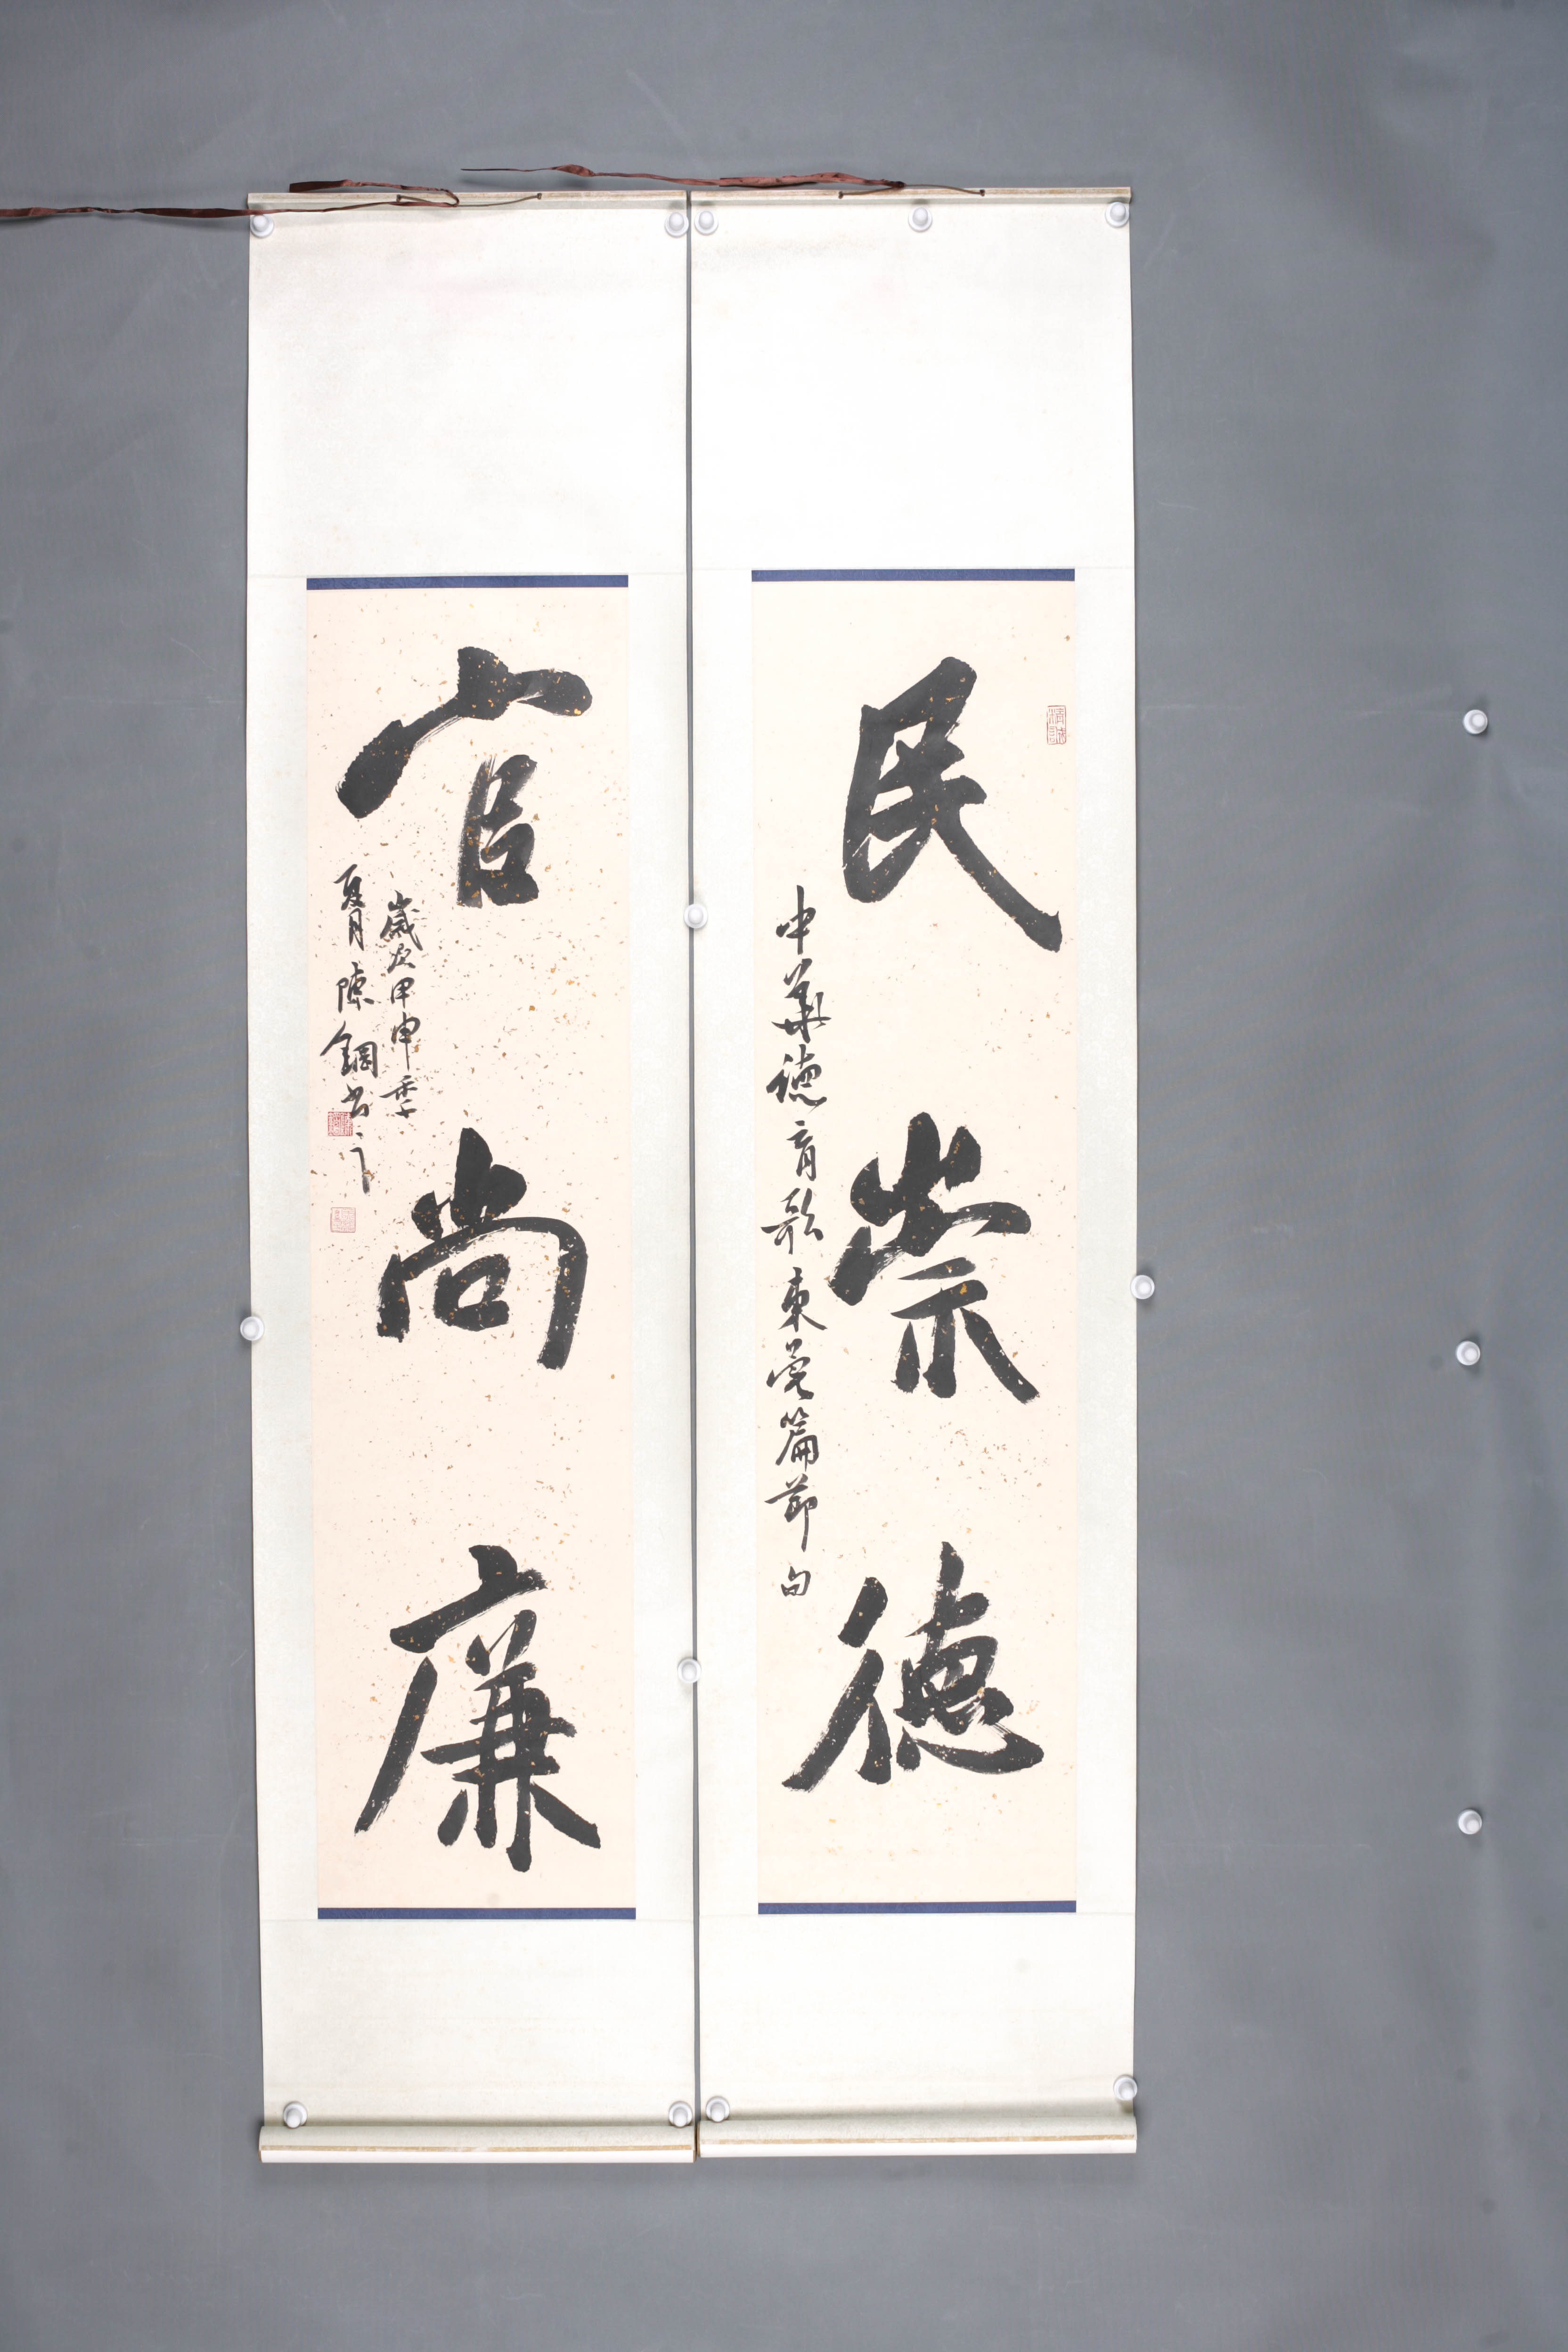 民崇德
中華德育歌東莞篇節句
官尚廉
歲次甲申季
夏月陳鋼書